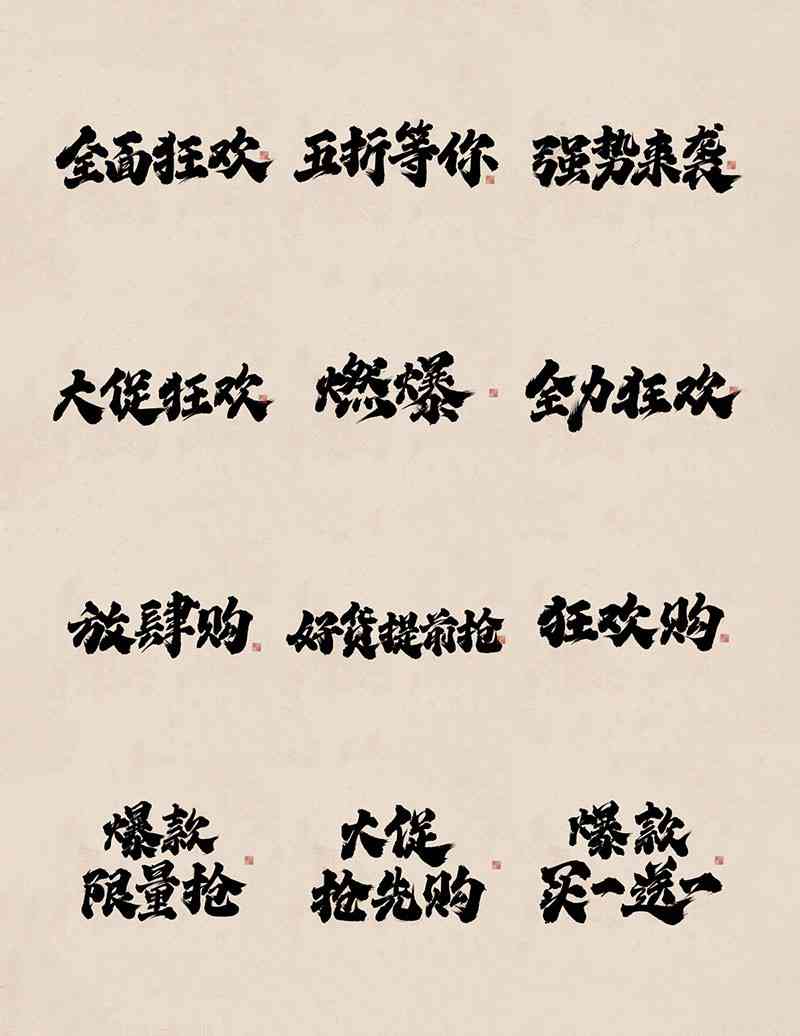 全面狂欢
五折等你
强势来袭
大促狂欢
燃爆
全力狂欢
放肆购
好货提前抢
狂欢购
爆款
限量抢
大促
抢先购
爆款
买一送一